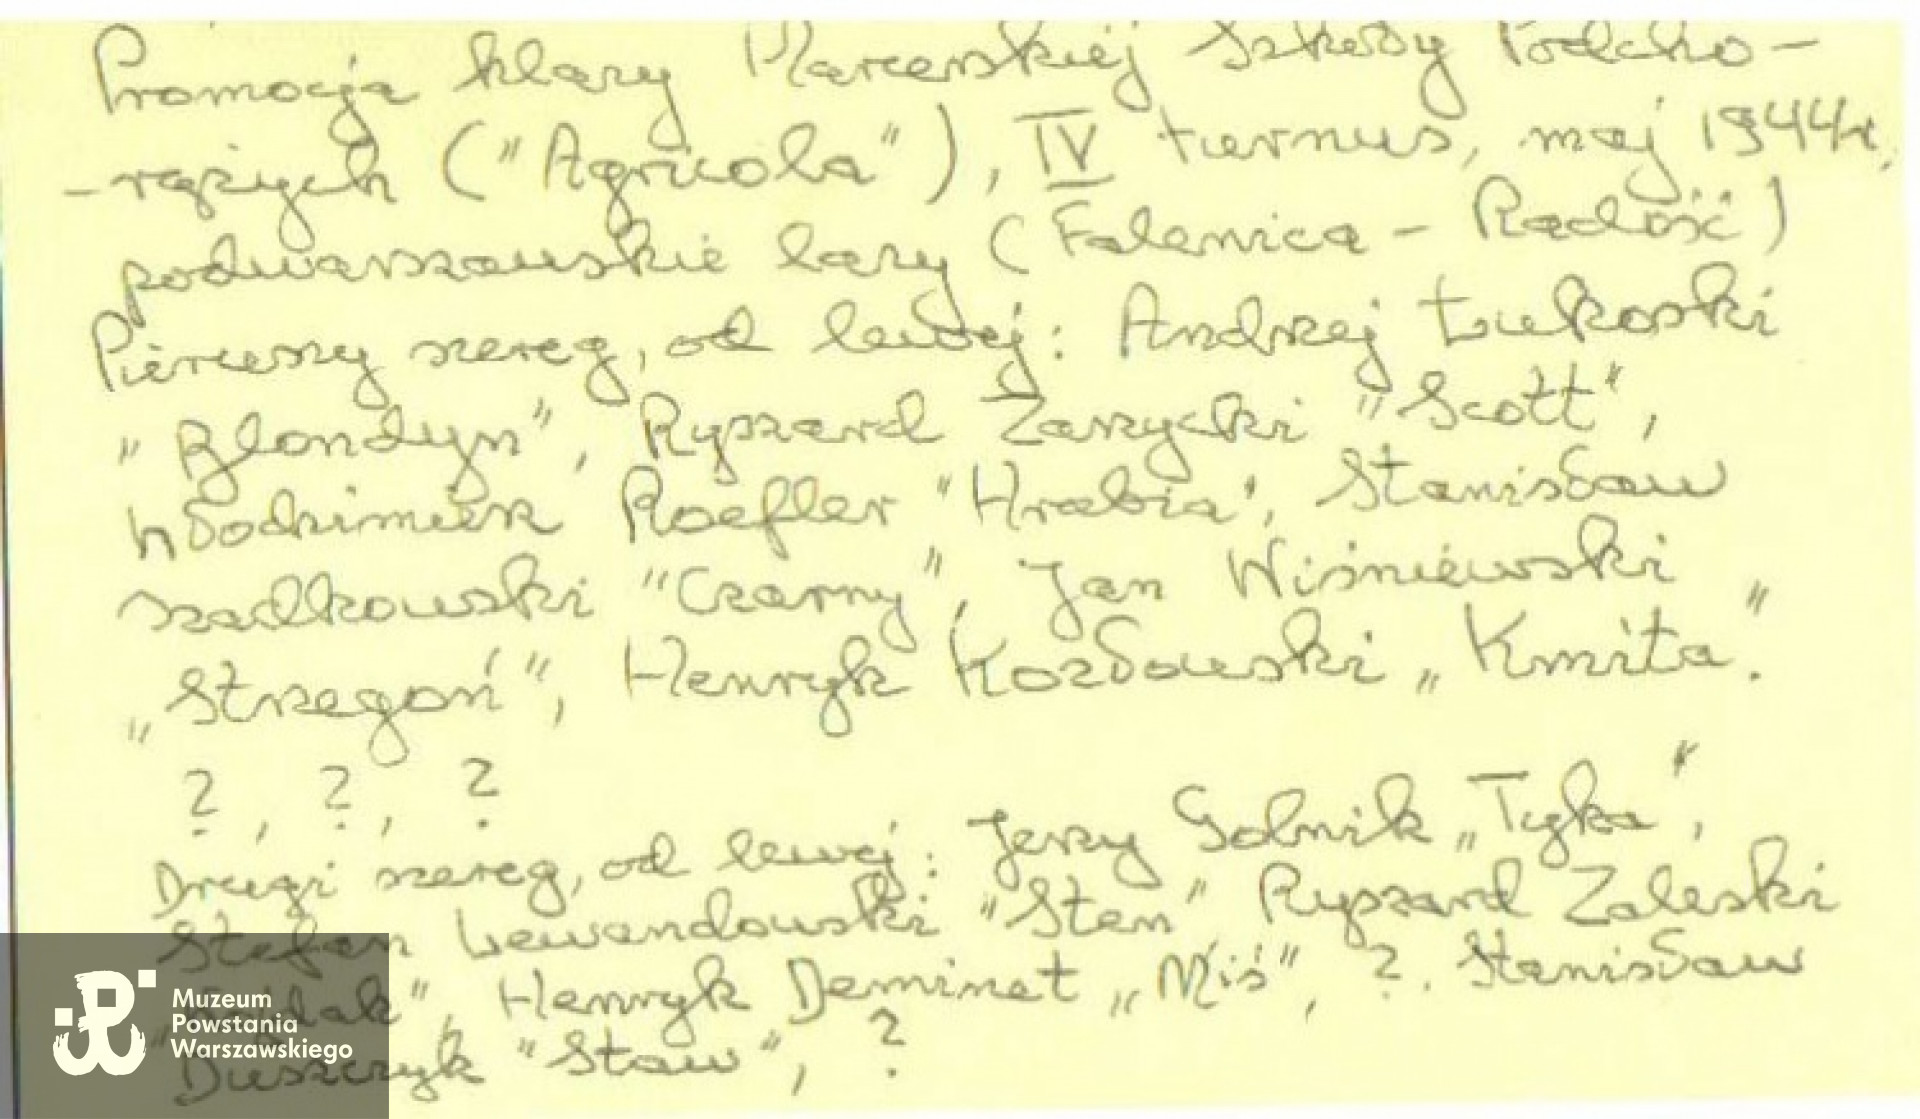 Promocja klasy Harcerskiej Szkoły Podcho-
-rążych ("Agricola"), IV turnus, maj 1944r,
podwarszawskie lasy (Falenica - Radość)
Pierwszy szereg, od lewej: Andrzej Łukoski
"Blondyn", Ryszard Zarzycki "Scott",
Włodzimierz Roefler "Hrabia", Stanisław
Szadkowski "Czarny", Jan Wiśniewski
"Strzegoń", Henryk Kozłowski „Kmita".
?, ?, ?
Drugi szereg, od lewej: Jerzy Golnik „Tyka",
Stefan Lewandowski "Sten" Ryszard Zaleski
Henryk Deminet „Miś", ?. Stanisław
Duszczyk "Staw", ?
Muzeum
Powstania
Warszawskiego